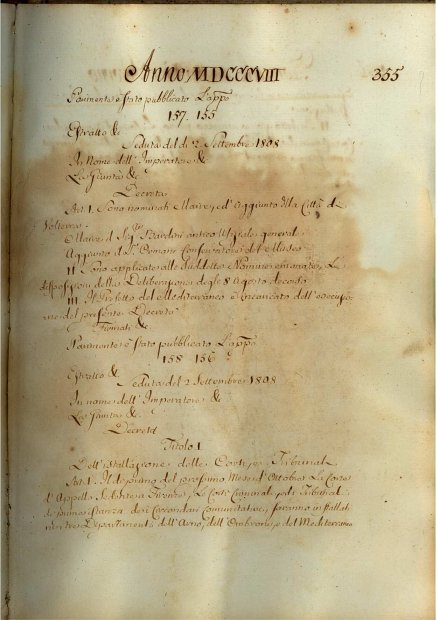 Anno MDCCCVIII 355
Parimente è stato pubblicato L'appo
157. 155
Estratto &
Seduta del dì 2 Settembre 1808
In Nome dell' Imperatore &
La Giunta &
Decreta
Art. 1. Sono nominati Maire, ed Aggiunto della Città di
Volterra
Maire il Antico Uffiziale generale
Aggiunto Conservatore del Museo
II Sono applicate alle suddette Nomine Le
disposizioni della Deliberazione degli 8 Agosto decorso
III. Il Prefetto del Mediterraneo è incaricato dell' esecuzio
ne del presente Decreto
Firmati &
Parimente è stato pubblicato L'appo
158 156
Estratto &
Seduta del 2 Settembre 1808
In nome dell' Imperatore &
La Giunta &
Decreta
Titolo I
Dell' istallazione delle Corti, e Tribunali
Art. 1. Il dì primo del prossimo Mese d'Ottobre La Corte
d'Appello Sedente a Firenze, Le Corti Criminali, ed i Tribunali
di prima istanza dei Circondari Comunitativi, saranno installati
nei tre Dipartimenti dell' Arno, dell' Ombrone, e del Mediterraneo